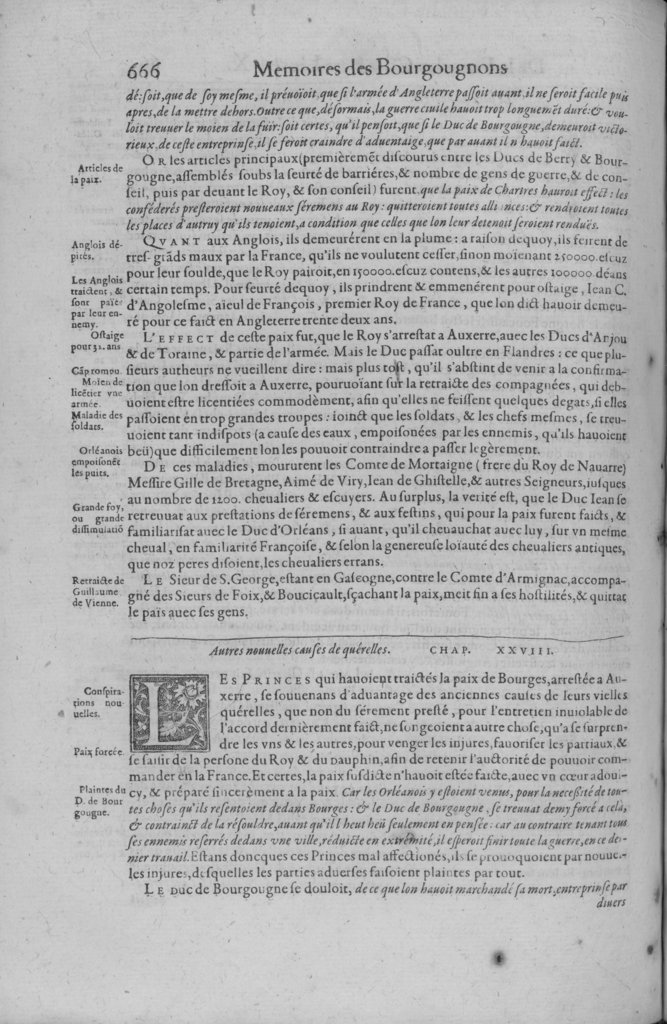 666 Memoires des Bourgougnons
dé: soit, que de soy mesme, il prévoïoit, que si l'armée d'Angleterre passoit avant, il ne seroit facile puis
apres, de la mettre dehors. Outre ce que, désormais, la guerre civile havoit trop longuemẽt duré: & vou-
loit treuuer le moien de la fuir: soit certes, qu'il pensoit, que si le Duc de Bourgougne, demeuroit victo-
rieux, de ceste entreprinse, il se feroit craindre d'aduentaige, que par auant il n'hauoit faict.
Articles de
la paix.
OR les articles principaux (premieremẽt discourus entre les Ducs de Berry & Bour-
gougne, assemblés soubs la seurté de barriéres, & nombre de gens de guerre, & de con-
seil, puis par deuant le Roy, & son conseil) furent, que la paix de Chartres hauroit effect: les
conféderés presteroient nouueaux séremens au Roy: quitteroient toutes alliances: & rendroient toutes
les places d'autruy qu'ils tenoient, a condition que celles que lon leur detenoit seroient rendues.
Anglois dé-
pités.
QVANT aux Anglois, ils demeurérent en la plume: a raison dequoy, ils feirent de
tres-grãds maux par la France, qu'ils ne voulutent cesser, sinon moïenant 250000. escuz
Les Anglois
traictent, &
sont païés
par leur en-
nemy.
pour leur soulde, que le Roy pairoit, en 150000. escuz contens, & les autres 100000 deans
certain temps. Pour seurté dequoy, ils prindrent & emmenérent pour ostaige, Iean C.
d'Angolesme, aieul de François, premier Roy de France, que lon dict hauoir demeu-
ré pour ce faict en Angleterre trente deux ans.
Ostaige
pour 32. ans
L'EFFECT de ceste paix fut, que le Roy s'arresta a Auxerre, auec les Ducs d'Anjou
& de Toraine, & partie de l'armée. Mais le Duc passat oultre en Flandres: ce que plu-
Cãp romou.
Moïen de
licẽtier vne
armée.
sieurs autheurs ne vueillent dire: mais plus tost, qu'il s'abstint de venir a la confirma-
tion que lon dressoit a Auxerre, pouruoïant sur la retraicte des compagnées, qui deb-
uoient estre licentiées commodément, afin qu'elles ne feissent quelques degats, si elles
Maladie des
soldats.
passoient en trop grandes troupes: ioinct que les soldats, & les chefs mesmes, se treu-
uoient tant indispots (a cause des eaux, empoisonées par les ennemis, qu'ils hauoient
Orléanois
empoisonẽt
les puits.
beü) que difficilement lon les pouuoit contraindre a passer legèrement.
DE ces maladies, moururent les Comte de Mortaigne (frere du Roy de Nauarre)
Messire Gille de Bretagne, Aimé de Viry, Iean de Ghistelle, & autres Seigneurs, iusques
au nombre de 1200. cheualiers & escuyers. Au surplus, la verité est, que le Duc Iean se
Grande foy,
ou grande
dissimulatiõ
retreuuat aux prestations de séremens, & aux festins, qui pour la paix furent faicts, &
familiarisat auec le Duc d'Orléans, si auant, qu'il cheuauchat auec luy, sur vn mesme
cheual, en familiarité Françoise, & selon la genereuse loïauté des cheualiers antiques,
que noz peres disoient, les cheualiers errans.
Retraicte de
Guillaume
de Vienne.
LE Sieur de S. George, estant en Gascogne, contre le Comte d'Armignac, accompa-
gné des Sieurs de Foix, & Boucicault, sçachant la paix, meit fin a ses hostilités, & quittat
le païs auec ses gens.
Autres nouuelles causes de quérelles. CHAP. XXVIII.
Conspira-
tions nou-
uelles.
LES PRINCES qui hauoient traictés la paix de Bourges, arrestée a Au-
xerre, se souuenans d'aduantage des anciennes causes de leurs vielles
quérelles, que non du sérement presté, pour l'entretien inuiolable de
l'accord dernièrement faict, ne songeoient a autre chose, qu'a se surpren-
dre les vns & les autres, pour venger les injures, fauoriser les partiaux, &
Paix forcée.
se saisir de la persone du Roy & du Dauphin, afin de retenir l'auctorité de pouuoir com-
mander en la France. Et certes, la paix susdicte n'hauoit estée faicte, auec vn cœur adou-
Plaintes du
D. de Bour
gougne.
cy, & préparé sincèrement a la paix. Car les Orléanois y estoient venus, pour la necessité de tou-
tes choses qu'ils resentoient dedans Bourges: & le Duc de Bourgougne, se treuuat demy forcé a cela,
& contrainct de la résouldre, auant qu'il l'heut heü seulement en pensée: car au contraire tenant tous
ses ennemis reserrés dedans vne ville, réduicte en extrémité, il esperoit finir toute la guerre, en ce der-
nier trauail. Estans doncques ces Princes mal affectionés, ils se prouoquoient par nouuel-
les injures, desquelles les parties aduerses faisoient plaintes par tout.
LE Duc de Bourgougne se douloit, de ce que lon hauoit marchandé sa mort, entreprinse par
diuers